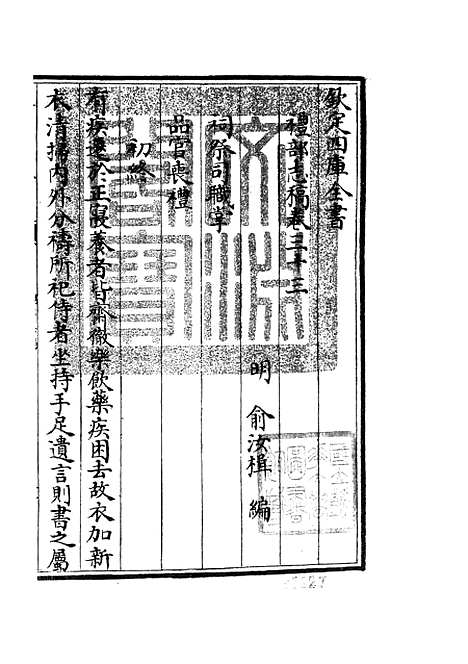 欽定四庫全書
禮部志稿卷三十三
明 俞汝楫 編
祠祭司職掌
品官喪禮
初終
有疾遷於正寢養者皆齋徹樂飲藥疾困去故衣加新
衣清掃內外分禱所祀侍者坐持手足遺言則書之屬